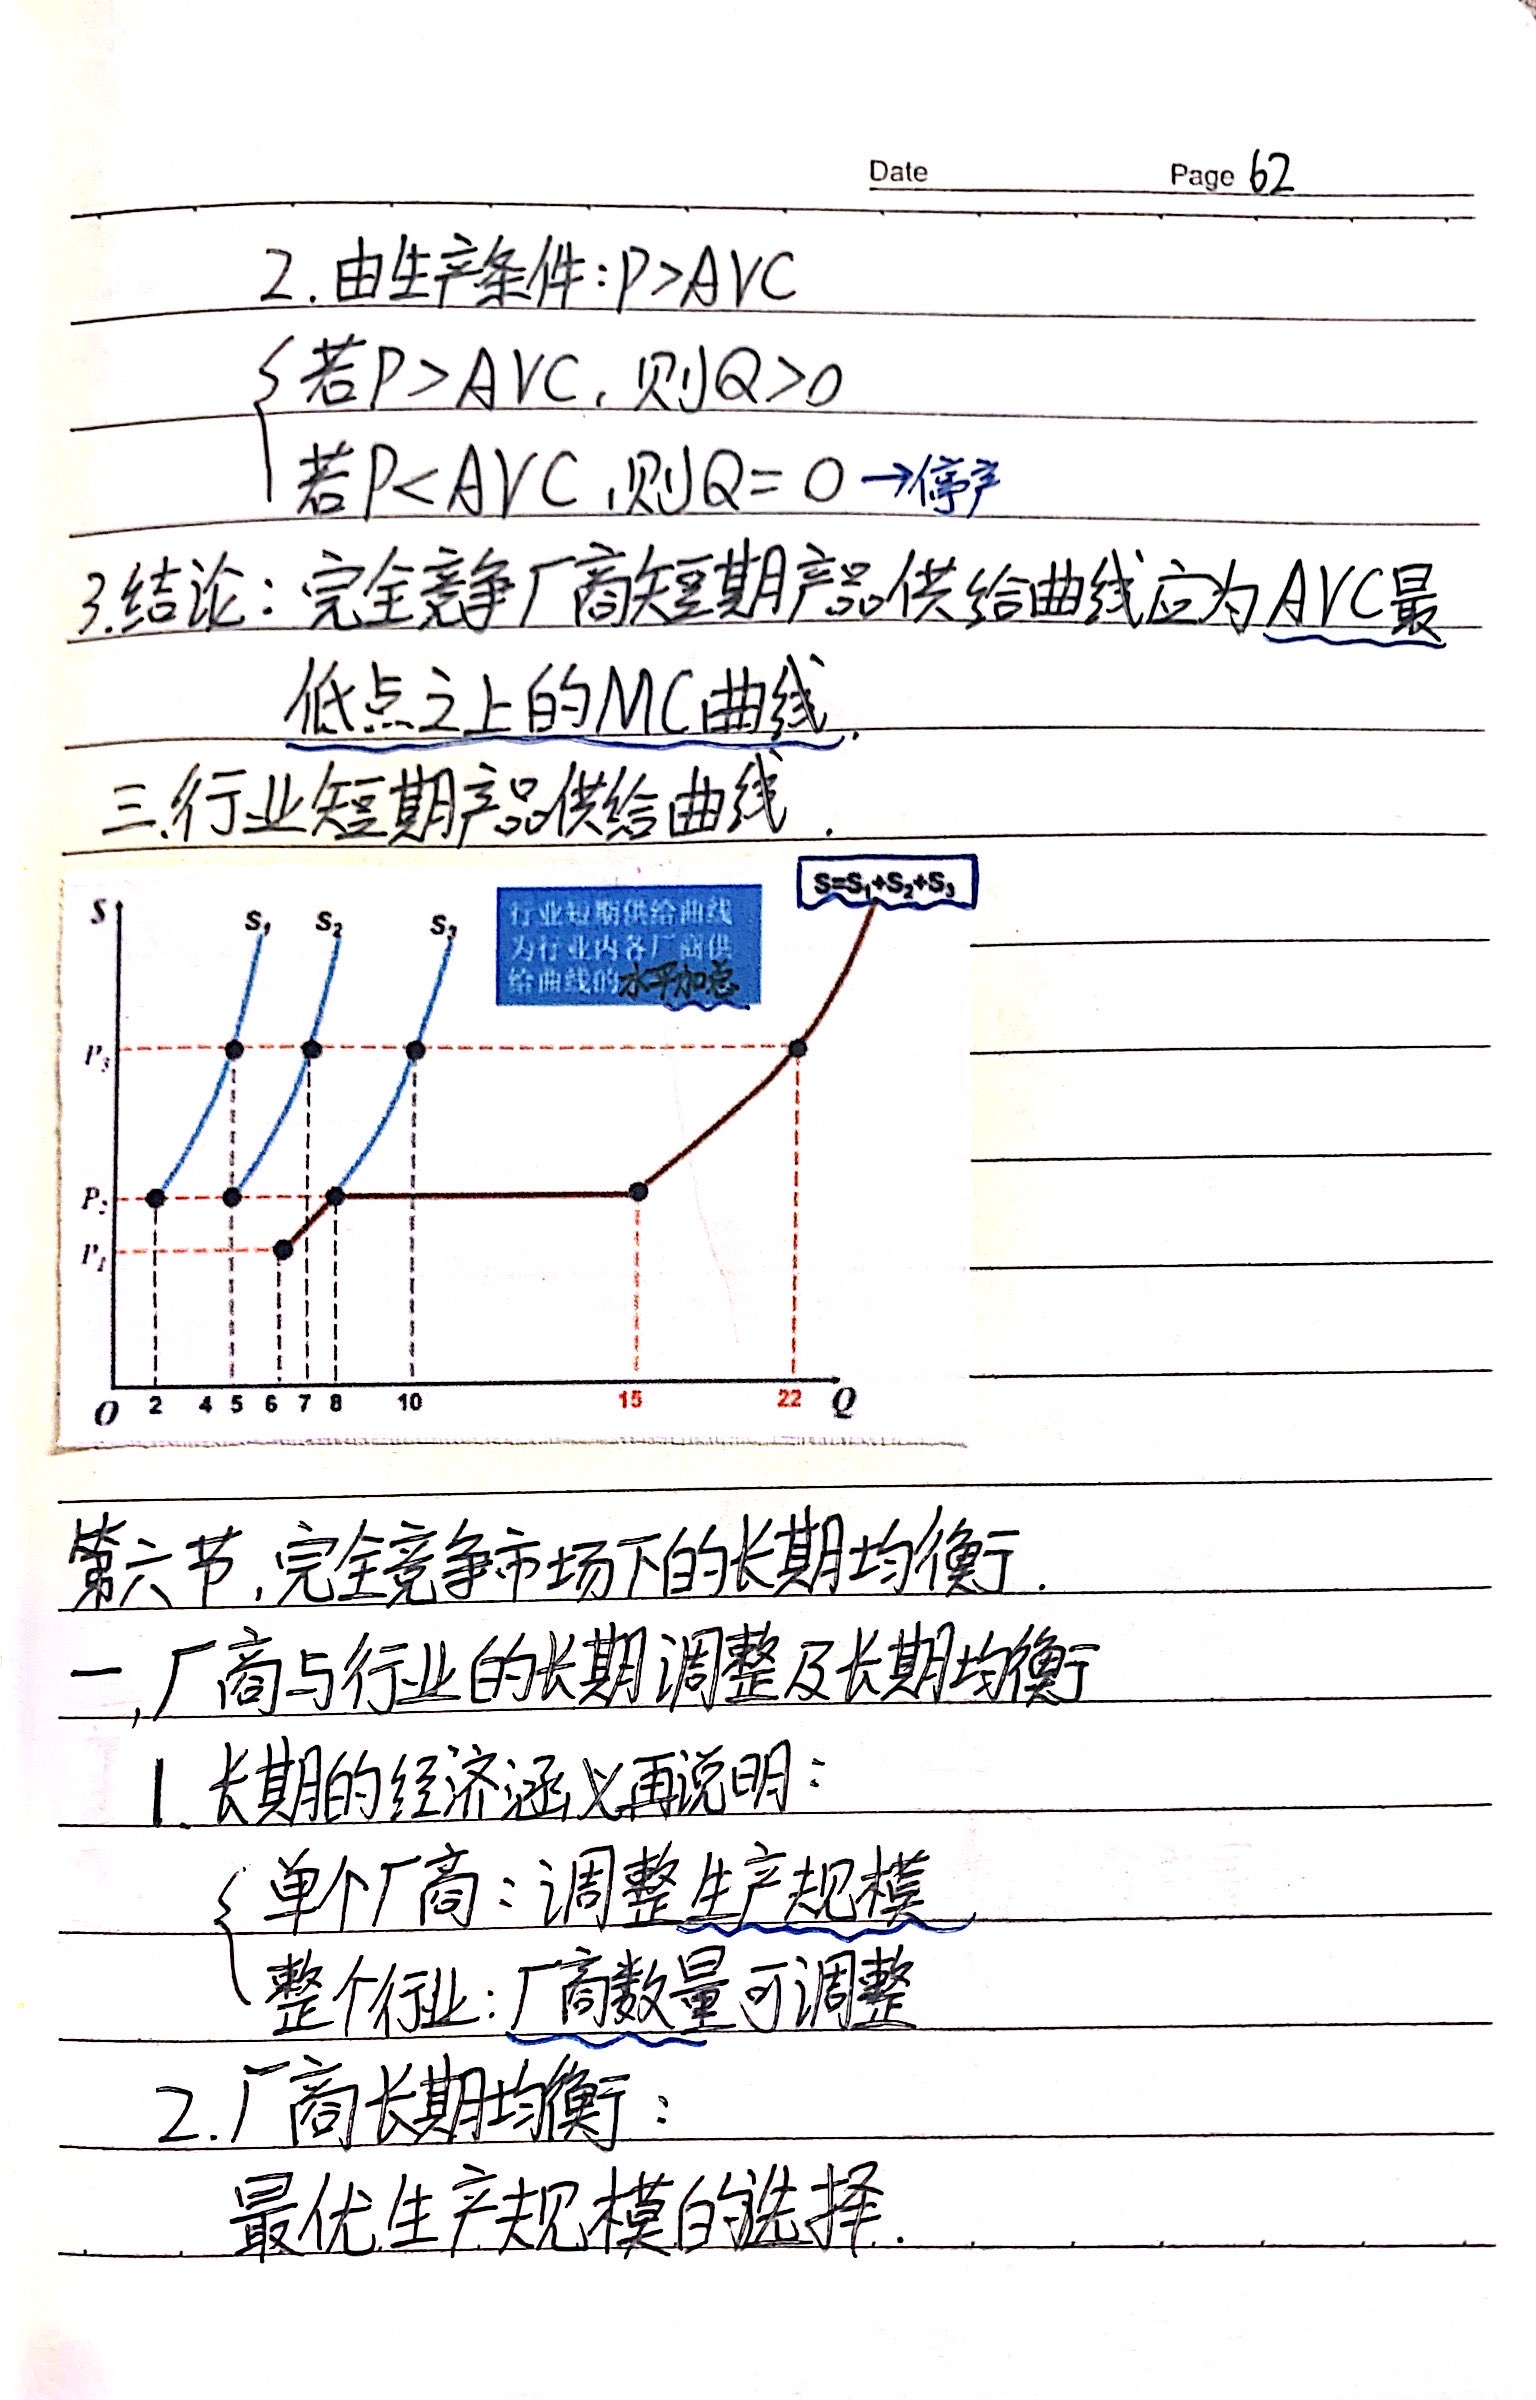 Date Page 62
2.由生产条件:P>AVC
若P>AVC,则Q>0
若P<AVC,则Q=0→停产
3.结论:完全竞争厂商短期产品供给曲线应为AVC最
低点之上的MC曲线.
三.行业短期产品供给曲线.
S=S₁+S₂+S₃
S S₁ S₂ S₃
行业短期供给曲线
为行业内各厂商供
给曲线的水平加总
P₃
P₂
P₁
O 2 4 5 6 7 8 10 15 22 Q
第六节,完全竞争市场下的长期均衡.
一,厂商与行业的长期调整及长期均衡
1.长期的经济涵义再说明:
单个厂商:调整生产规模
整个行业:厂商数量可调整
2.厂商长期均衡:
最优生产规模的选择.